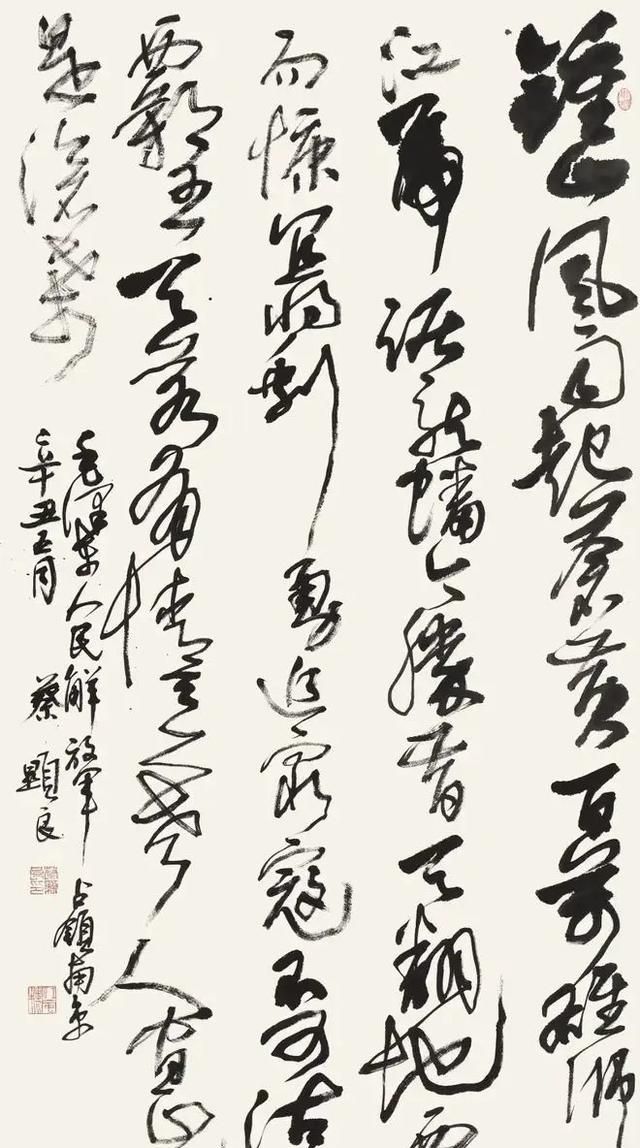 鍾山風雨起蒼黃百萬雄師
江虎踞龍蟠今勝昔天翻地
而慷宜將剩勇追窮寇不可沽
霸王天若有情天亦老人間正
是滄桑
毛澤東人民解放軍占領南京
辛丑五月 蔡顯良